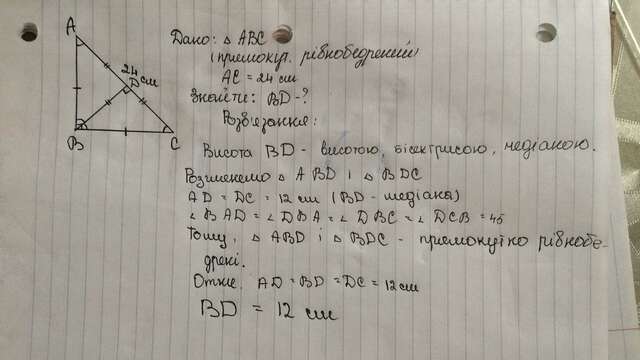 A
24 см
D
B
C
Дано: △ ABC
(прямокут. рівнобедрений)
AC = 24 см
Знайти: BD - ?
Розв'язання:
Висота BD - висотою, бісектрисою, медіаною.
Розглянемо △ ABD і △ BDC
AD = DC = 12 см (BD - медіана)
∠ BAD = ∠ DBA = ∠ DBC = ∠ DCB = 45
Тому, △ ABD і △ BDC - прямокутно рівнобе-
дрені.
Отже, AD = BD = DC = 12 см
BD = 12 см